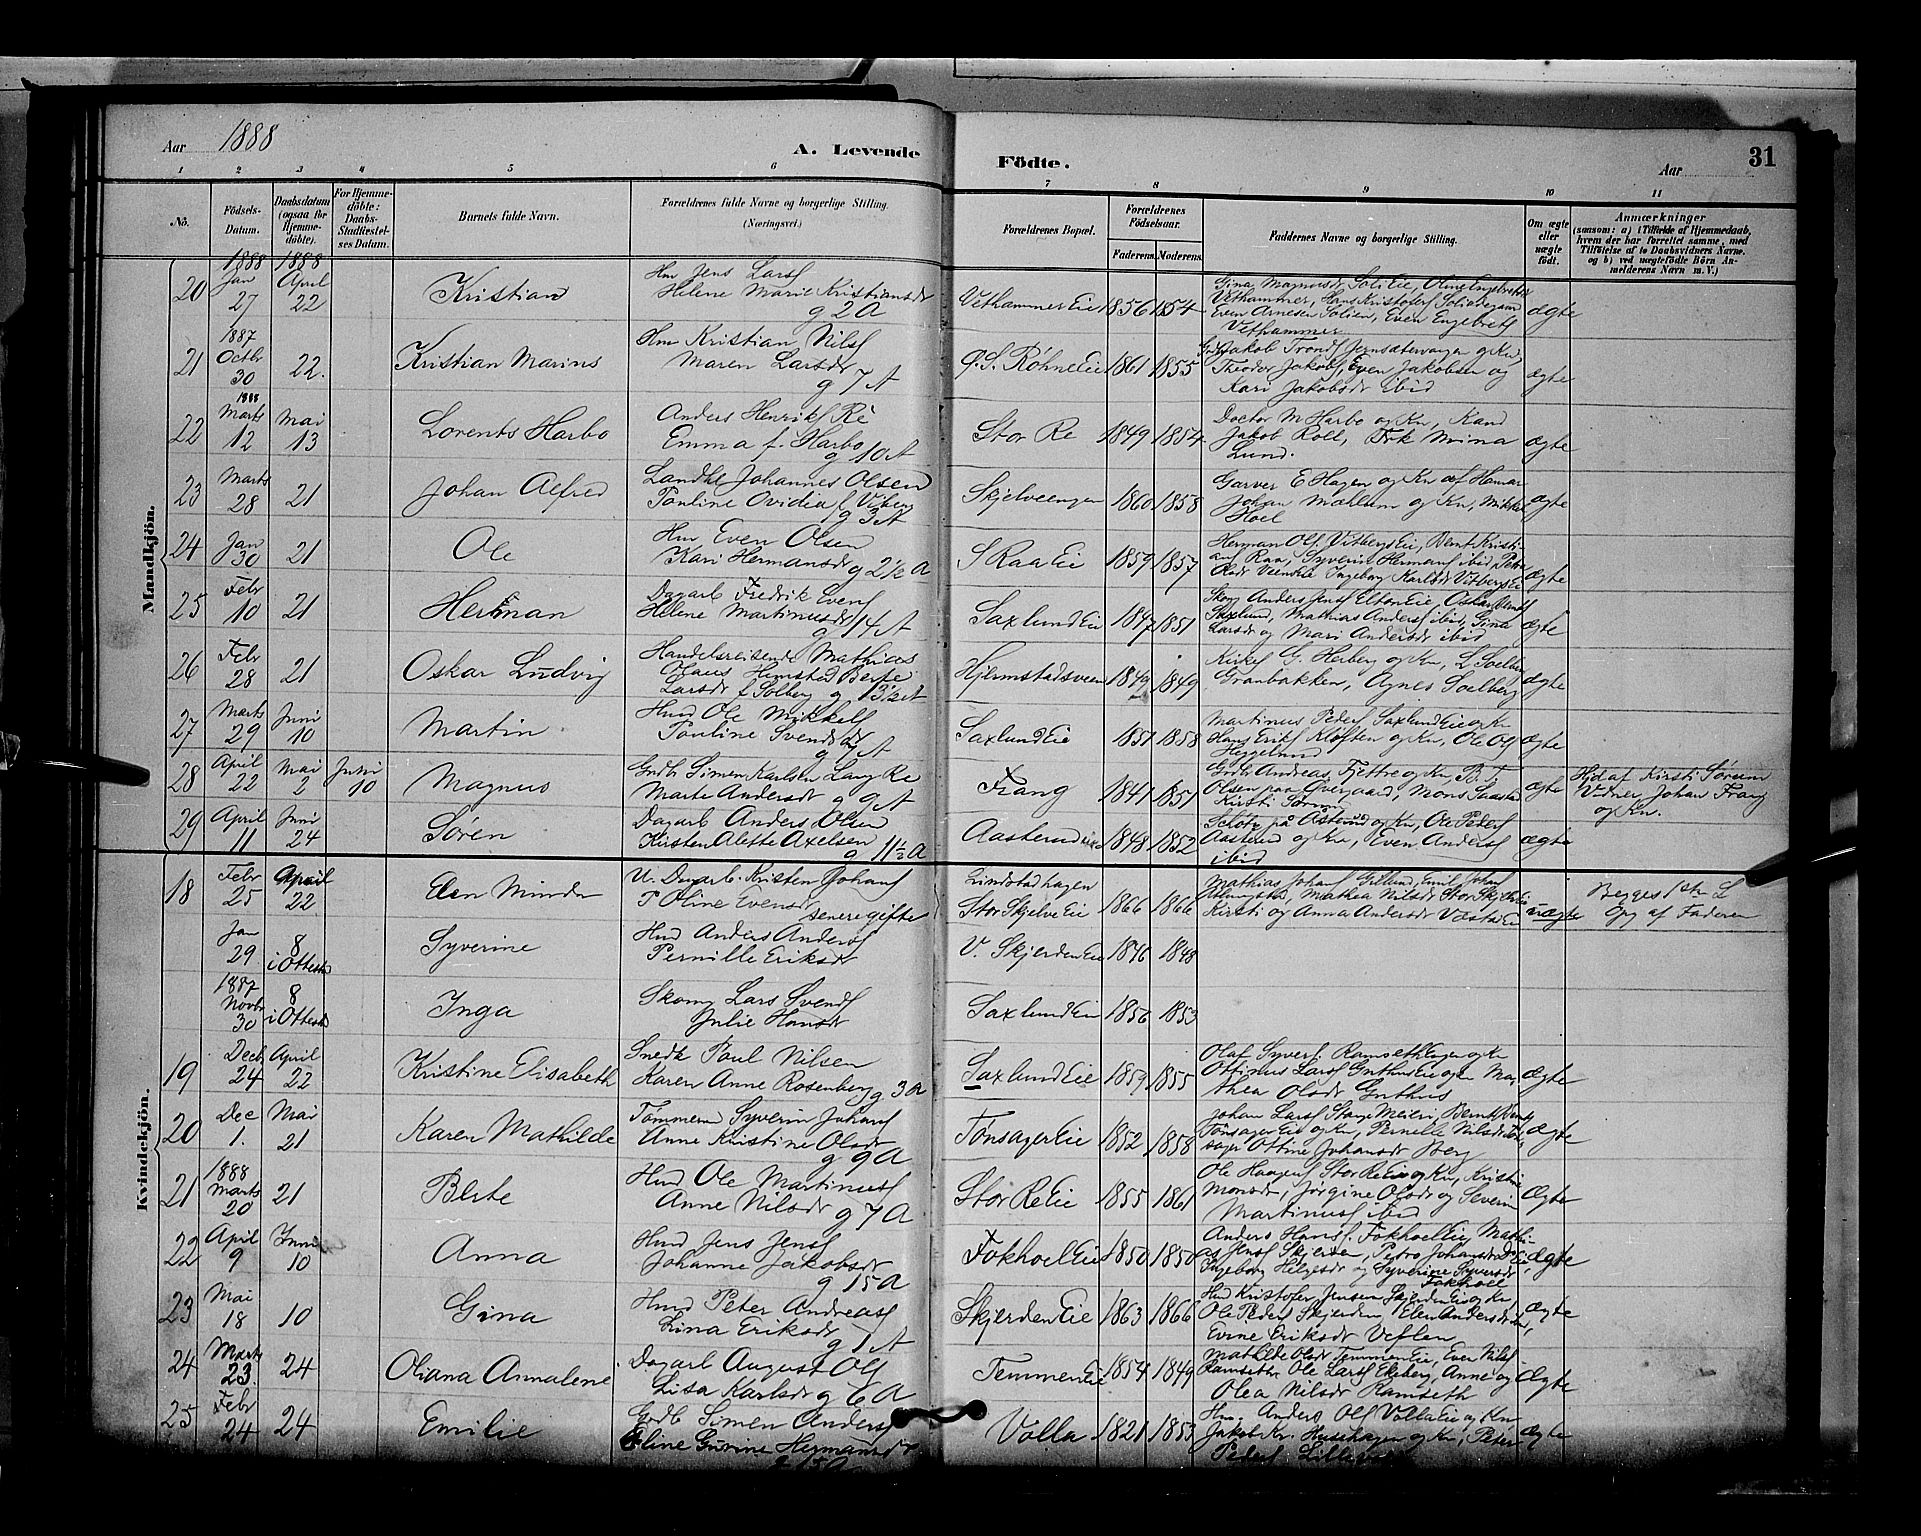 Aar 1888
A. Levende Födte.
Aar
31
1 2 3 4 5 6 7 8 9 10 11
No.
Födsels-Datum.
Daabsdatum (ogsaa for Hjemme-döbte).
For Hjemme-döbte: Daabs-Stadfæstel-ses Datum.
Barnets fulde Navn.
Forældrenes fulde Navne og borgerlige Stilling.
(Næringsvei.)
Forældrenes Bopæl.
Forældrenes Födselsaar.
Faderens. Moderens.
Faddernes Navne og borgerlige Stilling.
Om ægte eller uægte födt.
Anmærkninger
(saasom: a) i Tilfælde af Hjemmedaab,
hvem der har forrettet samme, med
Tilföielse af to Daabsvidners Navne.
og b) ved uægtefödte Börn An-
melderens Navn m. V.)
Mandkjön.
20 1888 Jan 27 1888 April 22 Kristian Hm Jens Larsf Helene Marie Kristiansdr g 2 A Vethammer Eie 1856 1854 Gina Magnusdr Soli Eie, Oline Engebretsdr
Vethammer, Hans Kristofers
Even Arnesen Solien, Even Engebretsf
Vethammer ægte
21 1887 Octbr 30 22. Kristian Marius Hm Kristian Nilsf Maren Larsdr g 7 A Ø. S. Röhne Eie 1861 1855 Jakob Trondf og Kn
Theodor Jakobsf, Even Jakobsen og
Kari Jakobsdr ibid ægte
22 1888 Marts 12 Mai 13 Lorents Harbo Anders Henriks Re Emma f. Harbo g 10 A Stor Re 1849 1854 Doctor M Harbo og Kn, Kand
Jakob Roll, Frk Mina
Lund. ægte
23 Marts 28 21 Johan Alfred Landhl Johannes Olsen Pauline Ovidia f Viberg g 3 A Skjelveengen 1860 1858 Garver E Hagen og Kn af Hamar
Johan Mælum og Kn, Mikkel
Hoel ægte
24 Jan 30 21 Ole Hm Even Olsen Kari Hermansdr g 2½ A S Raa Eie 1859 1857 Herman Olsf Vitberg Eie, Bernt Kristi-
ansf Raa, Syverin Hermansf ibid
Ingeborg Karlsdr Vitberg Eie ægte
25 Febr 10 21 Herman Dagarb Fredrik Evensf Helene Martinusdr g 14 A Saxlund Eie 1847 1851 Skom Anders Jensf Elton Eie, Oskar
Saxlund, Mathias Andersf ibid, Gina
Larsdr og Mari Andersdr ibid ægte
26 Febr 28 21 Oskar Ludvig Handelsreisende Mathias
Olaus Hemstad Berte
Larsdr f Solberg g 13½ A Hjermstadsveen 1849 1849 Kirkes G. Herberg og Kn, L Soelberg
Granbakken, Agnes Soelberg ægte
27 Marts 29 Juni 10 Martin Husm Ole Mikkelsf Pauline Svendsdr g A Saxlund Eie 1857 1858 Martinus Pedersf Saxlund Eie og Kn
Hans Eriksf Kloften og Kn, Ole Olsf
Heggelund ægte
28 April 22 Mai 2 Juni 10 Magnus Grdb Simen Karlsen Lang Re Marte Andersdr g 9 A Frang 1841 1851 Grdb Andreas Fjettre og Kn, B. T.
Olsen paa Overgaard, Mons Saastad
Kirsti Sörum ægte Hjd af Kirsti Sörum
Vidner Johan Frang
og Kn.
29 April 11 Juni 24 Sören Dagarb Anders Olsen Kirsten Alette Axelsen g 11½ A Aasterud 1848 1852 på Aasterud og Kn, Ole Pedersf
Aasterud og Kn, Even Andersf
ibid ægte
Kvindekjön.
18 Febr 25 April 22 Elen Minda U. Dagarb. Kristen Johansf
P Oline Evensdr senere gifte Lindstadhagen
Stor Skjelve Eie 1866 1866 Mathias Johansf, Emil Johansf
Mathea Nilsdr Stor Skjelve Eie
Kirsti og Anna Andersdr uægte Begges 1ste L
Opg af Faderen
Jan 29 8 i Ottestd Syverine Husm Anders Andersf Pernille Eriksdr V. Skjerden Eie 1846 1848
1887 Novbr 30 8 i Ottestd Inga Skomg Lars Svendsf Julie Hansdr Saxlund Eie 1856 1853
19 Decb 24 April 22 Kristine Elisabeth Snedk Paul Nilsen Karen Anne Rosenberg g 3 A Saxlund Eie 1859 1855 Olaf Syversf. Ramseth og Kn
Ottinus Larsf Gruthus Eie og Kn Ma-
thea Olsdr Gruthus ægte
20 Dec 1. Mai 21 Karen Mathilde Tömmerm Syverin Johansf Anne Kristine Olsdr g 9 A Tönsager Eie 1852 1858 Johan Larsf Stange Meieri, Bernt
Tönsager Eie og Kn, Pernelle Nilsdr
Ottine Johansdr Berg ægte
21 1888 Marts 20 21 Berte Husm Ole Martinusf Anne Nilsdr g 7 A Stor Re Eie 1855 1861 Ole Haagensf Stor Re Eie og Kn, Kristine
Monsdr, Jörgine Olsdr og Severin
Martinusf ibid ægte
22 April 9 Juni 10 Anna Husm Jens Jensf Johanne Jakobsdr g 15 A Fokhoel Eie 1850 1850 Anders Hansf. Fokhoel Eie, Mathi-
as Jensf Skjerden, Petra Johansdr
Ingeborg Helgesdr og Syverine Syversdr
Fokhoel ægte
23 Mai 18 10 Gina Husm Peter Andreasf Lina Eriksdr g 1 A Skjerden Eie 1863 1866 Hm Kristofer Jensen Skjerden Eie og Kn,
Ole Pedersf Skjerden, Elen Andersdr
Evine Eriksdr Veflen ægte
24 Marts 23. 24 Oliana Annalene Dagarb August Olsf Lisa Karlsdr g 6 A Temmen Eie 1854 1849 Mathilde Olsdr Temmen Eie, Even Nilsf
Ramseth, Ole Larsf Ekeberg, Anne og
Olea Nilsdr Ramseth ægte
25 Febr 24 24 Emilie Grdb Simen Andersf Eline Gurine Hermansdr g 15 A Volla 1821 1853 Hm. Anders Olsf Volla Eie og Kn
Jakob Kr. Husehagen og Kn, Peter
Pedersf ægte